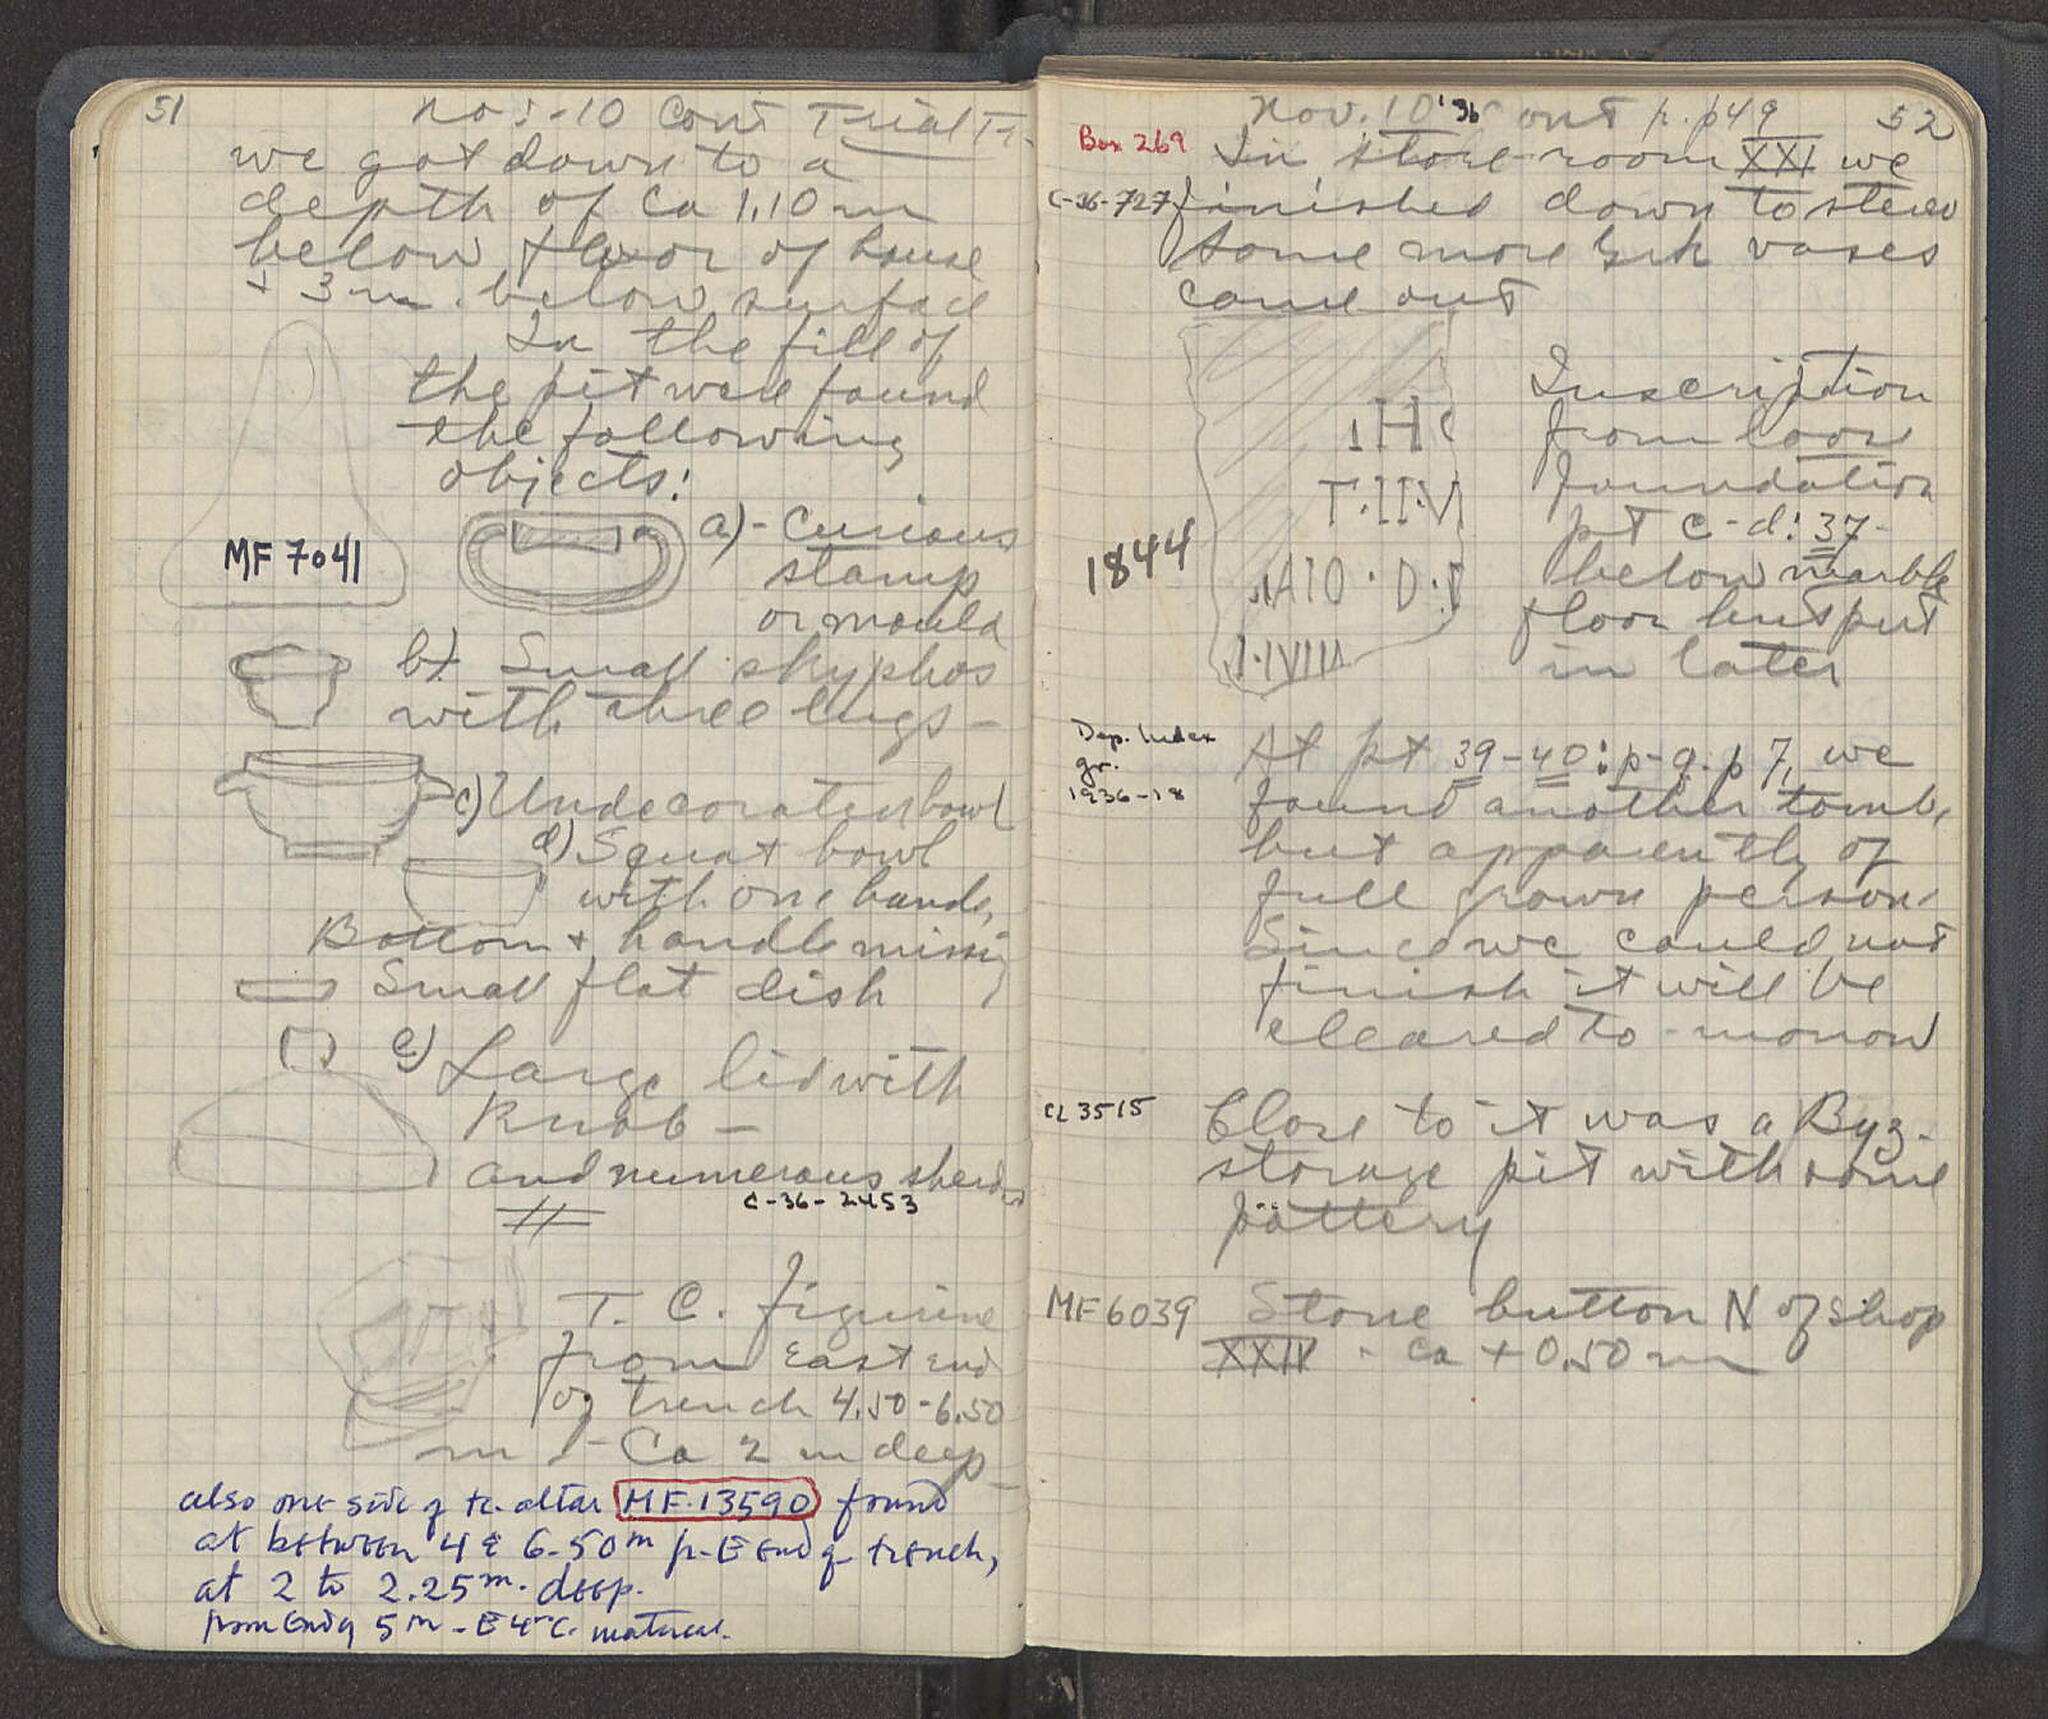 51
Nov-10 Cont Trial Tr.
we got down to a
depth of ca 1.10 m
below floor of house
+ 3 m. below surface
In the fill of
the pit were found
the following
objects:
MF 7041
a)- Curious
stamp
or mould
b). Small skyphos
with three lugs-
c) Undecorated bowl
d) Squat bowl
with one handle,
Bottom + handle missing
Small flat dish
e) Large lid with
Knob -
and numerous sherds
C-36-2453
T. C. figurine
from East end
of trench 4.50-6.50
m - Ca 2 m deep-
also one side of tc. altar MF.13590 found
at between 4 & 6.50m fr. E End of trench,
at 2 to 2.25m. deep.
from End of 5m - E 4th C. material.
52
Nov. 10 '36 Cont fr. p 49
Box 269
In store-room XXI we
C-36-727
finished down to stereo
Some more Grk vases
came out
IH
T·II·V
AIO·D·
I·IVIIA
1844
Inscription
from loose
foundation
pt c-d:37-
below marble
floor but put
in later
Dep. Index
gr.
1936-18
At pt 39-40:p-q. p 7, we
found another tomb,
but apparently of
full grown person.
Since we could not
finish it will be
cleared to-morrow
CL 3515
Close to it was a Byz.
storage pit with some
pottery
MF 6039
Stone button N of shop
XXIV - Ca + 0.50 m